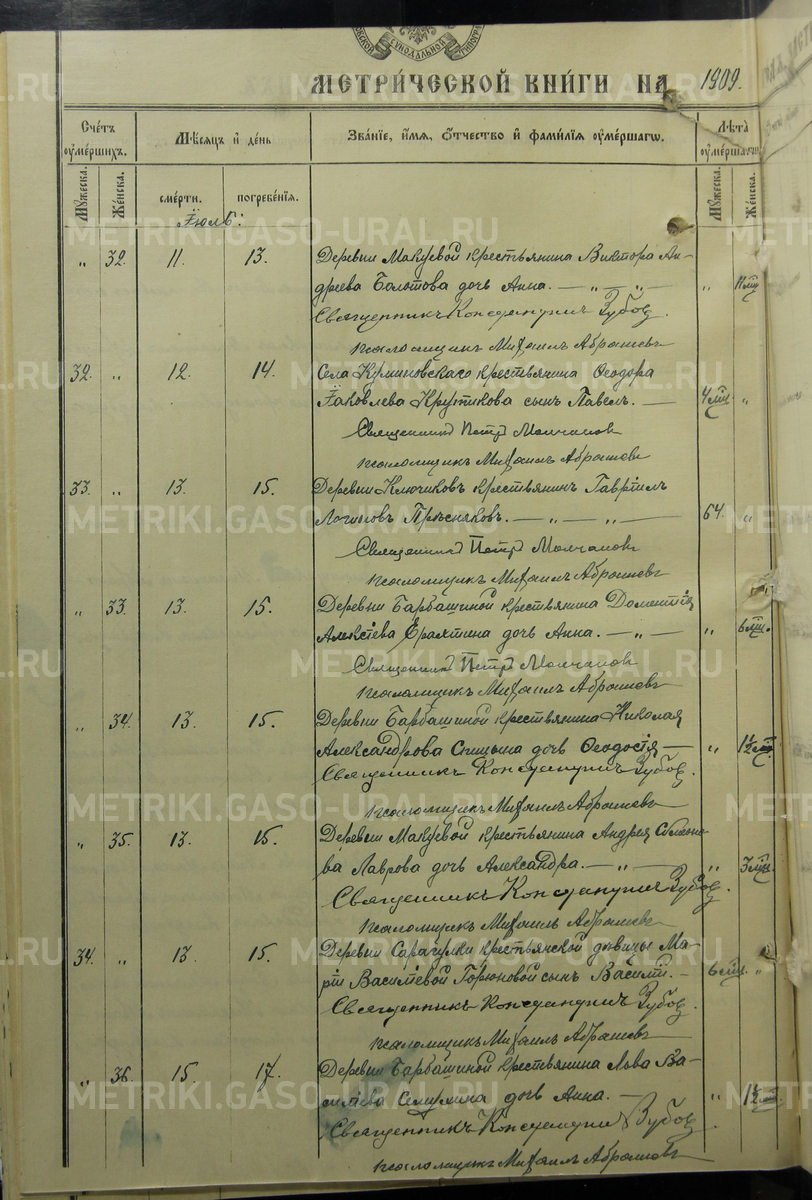 МЕТРИ́ЧЕСКОЙ КНИ́ГИ НА 1909.
Сче́тъ оу҆ме́ршихъ.
Мѣ́сяцъ и҆ де́нь
Зва́нїе, и҆́мя, ѻ҆́тчество и҆ фами́лїя оу҆ме́ршагѡ.
Лѣ́та оу҆ме́ршагѡ
Му́жеска.
Же́нска.
сме́рти.
погребе́нїя.
Му́жеска.
Же́нска.
Іюль:
" 32. 11. 13. Деревни Макуевой крестьянина Виктора Ан-
дреева Болотова дочь Анна. — " — " — " 11 мц.
Священникъ Константинъ Зубов.
псаломщикъ Михаилъ Абрашевъ
32. " 12. 14. Села Куминовскаго крестьянина Ѳеодора
Іаковлева Крутикова сынъ Павелъ. — 4 мц. "
Священникъ Петръ Молчановъ
псаломщикъ Михаилъ Абрашевъ
33. " 13. 15. Деревни Ключиковъ крестьянинъ Гавріилъ
Логиновъ Прѣсняковъ. — " — " — 64. "
Священникъ Петръ Молчановъ
псаломщикъ Михаилъ Абрашевъ
" 33. 13. 15. Деревни Барбашиной крестьянина Дометія
Алексѣева дочь Анна. — " — " 6 мц.
Священникъ Петръ Молчановъ
псаломщикъ Михаилъ Абрашевъ
" 34. 13. 15. Деревни Барбашиной крестьянина Николая
Александрова Спицына дочь Ѳеодосія — " 1½ мц.
Священникъ Константинъ Зубов.
псаломщикъ Михаилъ Абрашевъ
" 35. 13. 15. Деревни Макуевой крестьянина Андрея Симеоно-
ва Лаврова дочь Александра. — " — " 3 мц.
Священникъ Константинъ Зубов.
псаломщикъ Михаилъ Абрашевъ
34. " 13. 15. Деревни Сарагулки крестьянской дѣвицы Ма-
ріи Васильевой Горюновой сынъ Василій. — 6 мц. "
Священникъ Константинъ Зубов.
псаломщикъ Михаилъ Абрашевъ
" 36. 15. 17. Деревни Барбашиной крестьянина Льва Ва-
сильева дочь Анна. — " 1½ мц.
Священникъ Константинъ Зубов
псаломщикъ Михаилъ Абрашевъ
METRIKI.GASO-URAL.RU